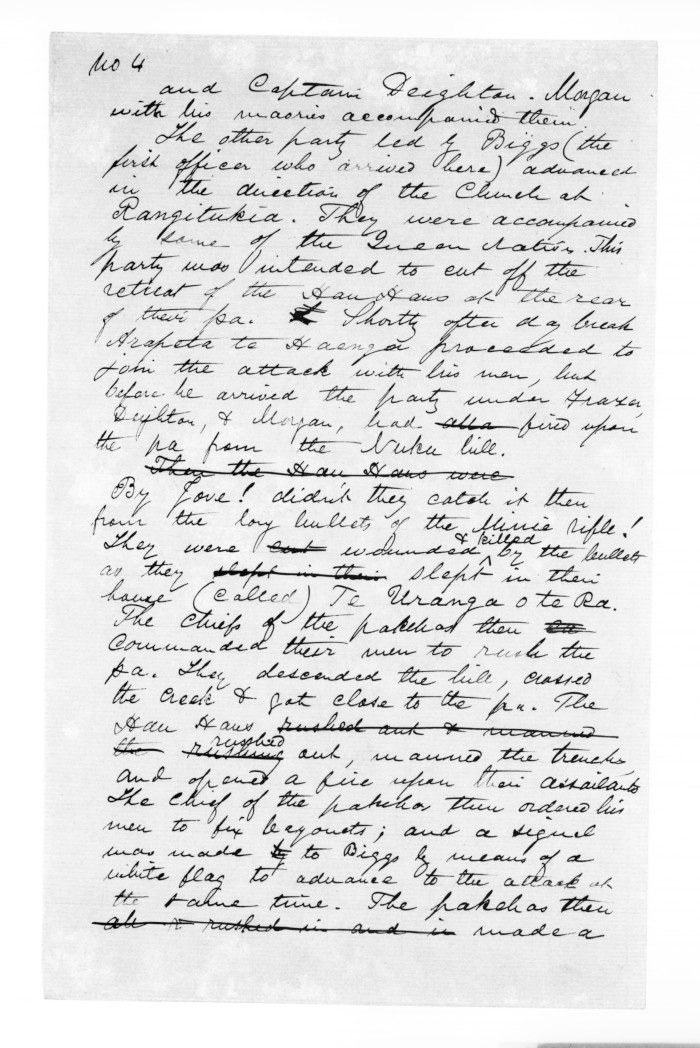 No 4
and Captain Deighton. Morgan
with his maories accompanied them
The other party led by Biggs (the
first officer who arrived here) advanced
in the direction of the Church at
Rangitukia. They were accompanied
by some of the Queen Natives. This
party was intended to cut off the
retreat of the Hau Haus at the rear
of their pa. Shortly after day break
Arapeta te Haenga proceeded to
join the attack with his men, but
before he arrived the party under Frazer,
Deighton, & Morgan, had fired upon
the pa from the Nuku hill.
Then the Hau Haus were
By Jove! didn't they catch it then
from the long bullets of the Minie rifle!
They were cut wounded & killed by the bullets
as they slept in their slept in their
house (called) Te Uranga o te Ra.
The Chiefs of the pakehas then
commanded their men to rush the
pa. They descended the hill, crossed
the creek & got close to the pa. The
Hau Haus rushed out & manned
the rushing rushed out, manned the trenches
and opened a fire upon their assailants
The Chief of the pakehas then ordered his
men to fix bayonets; and a signal
was made by to Biggs by means of a
white flag to advance to the attack at
the same time. The pakehas then
all & rushed in and in made a